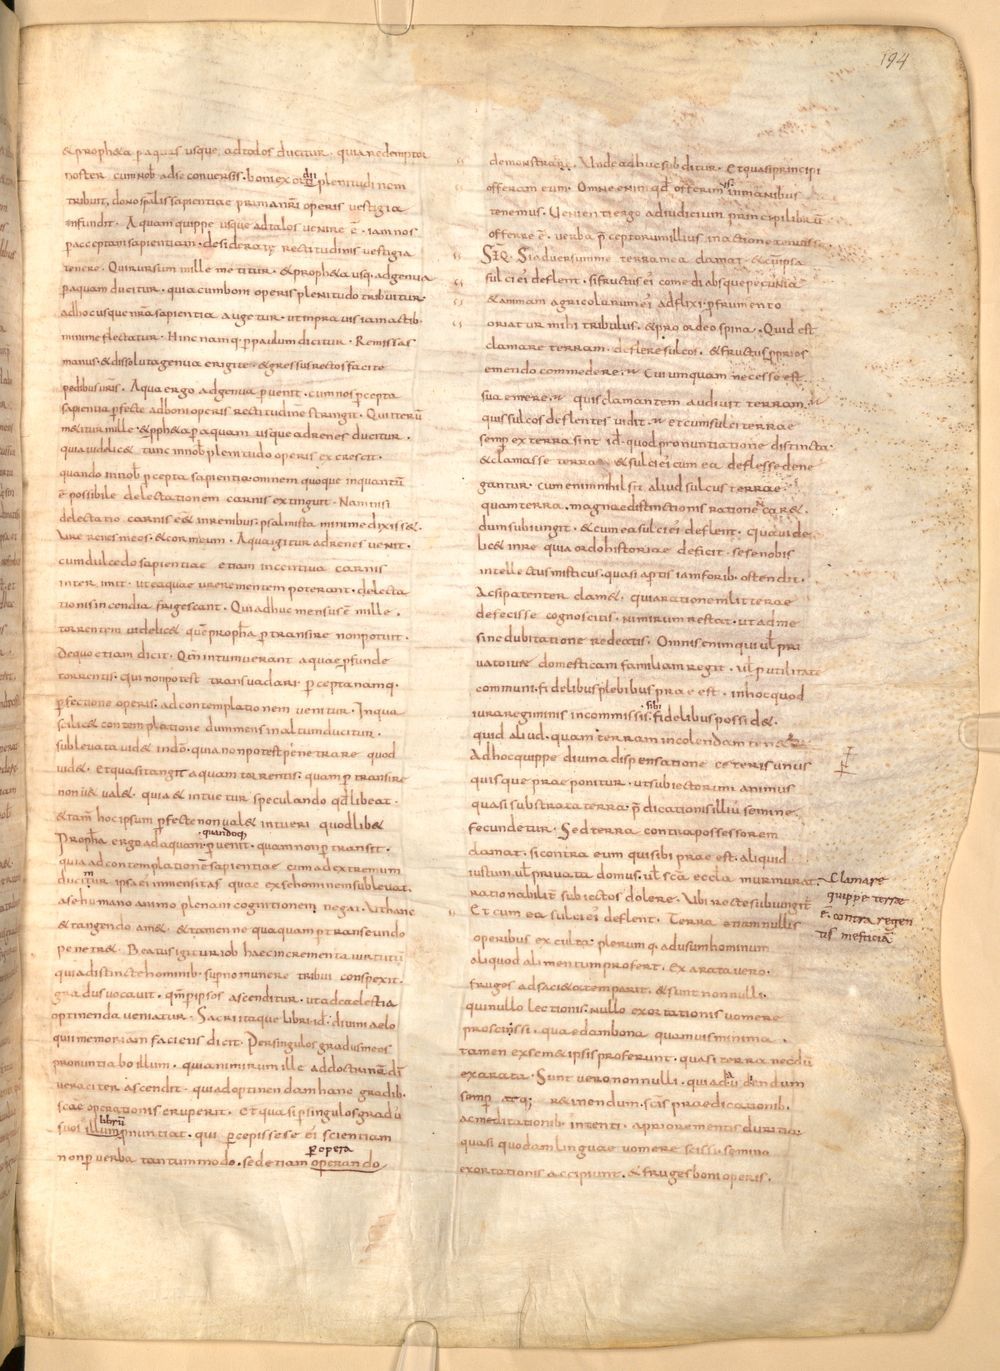 194
& proph&a p aquas usque ad talos ducitur. quia redemptor
noster cum nob adse conversis. boni exordii plenitudinem
tribuit, dono spalis sapientiae primanri operis vestigia
infundit. Aquam quippe usque ad talos venire ē. iam nos
p acceptam sapientiam. desideratę rectitudinis vestigia
tenere. Qui rursum mille metitur. & proph&a usq; ad genua
p aquam ducitur. quia cum boni operis plenitudo tribuitur.
adhoc usque nra sapientia augetur. ut in pravis iam actib.
minime flectatur. Hinc namq. p paulum dicitur. Remissas
manus. & dissoluta genua erigite. & gressus rectos facite
pedibus uris. Aqua ergo ad genua pvenit. cum nos pcepta
sapientia pfecte ad boni operis rectitudine stringit. Qui iterū
m&itur mille. & pph&a p aquam usque ad renes ducitur.
quia videlic& tunc in nob plenitudo operis excrescit.
quando in nob pcepta sapientia. omnem quoque in quantū
ē possibile delectationem carnis extinguit. Nam nisi
delectatio carnis ess& in renibus. psalmista minime dixiss&.
Ure renes meos. & cor meum. Aqua igitur ad renes venit.
cum dulcedo sapientiae etiam incentiva carnis
interimit. ut ea quae urere mentem poterant. delecta
tionis incendia frigescant. Qui adhuc mensus ē mille.
torrentem videlic& quē propha ptransire non potuit.
De quo etiam dicit. Qm intumuerant aquae pfunde
torrentis. qui non potest transvadari. pcepta namq.
pfectione operis. ad contemplationem venitur. In qua
scilic& contemplatione dum mens in altum ducitur.
sublevata vid& in dō. quia non potest penetrare quod
vid&. Et quasi tangit aquam torrentis. quam ptransire
non val&. quia & intuetur speculando qd libeat.
& tam hoc ipsum pfecte non val& intueri quod lib&
quandoq;
Propha ergo ad aquam pvenit. quam non ptransit.
quia ad contemplationē sapientiae cum ad extremum
ducimur ipsa ei inmensitas quae ex se hominem sublevat.
a se humano animo plenam cognitionem negat. Ut hanc
& tangendo am&. & tamen nequaquam ptranseundo
penetr&. Beatus igitur iob haec incrementa virtutū
quia distincte hominib. supno munere tribui conspexit.
gradus vocavit. qm p ipsos ascenditur. ut ad caelestia
optinenda veniatur. Sacri itaque libri. id ē divini aelo
quii memoriam faciens dicit. Per singulos gradus meos
pronuntiabo illum. quia nimirum ille ad doctrina di
veraciter ascendit. qui ad optinendam hanc gradib.
scae operationis eruperit. Et quasi p singulos gradū
librū
suos illum pnuntiat. qui pcepisse se ei scientiam
p opera
non p verba tantummodo. sed etiam operando
demonstrat. Unde adhuc subditur. Et quasi principi
offeram eum. Omne enim qd offerimus in manibus
tenemus. Venienti ergo ad iudicium principi librū
offerre ē. verba pceptorum illius in actione tenuisse.
SEQ. Si adversum me terra mea clamat. & cū ipsa
sulci ei deflent. si fructus ei comedi absque pecunia
& animam agricolarum ei adflixi. p frumento
oriatur mihi tribulus. & pro ordeo spina. Quid est
clamare terram. deflere sulcos. & fructus pprios
emendo commedere; Cui umquam necesse est
sua emere; quis clamantem audivit terram;
quis sulcos deflentes vidit; et cum sulci terrae
semp ex terra sint id ē quod pronuntiatione distincta
& clamasse terra & sulci ei cum ea deflesse dene
gantur. cum enim nihil sit aliud sulcus terrae
quam terra. magna distinctionis ratione car&.
dum subiungit. & cum ea sulci ei deflent. Qua vide
lic& in re quia ordo historiae deficit. sese nobis
intellectus misticus. quasi aptis iam forib. ostendit.
Ac si patenter clam&. quia ratione mi litterae
defecisse cognoscitis. nimirum restat. ut ad me
sine dubitatione redeatis. Omnis enim qui vl pri
vato iure domesticam familiam regit. vl p utilitate
communi. fidelibus plebibus praeest. in hoc quod
sibi
iura regiminis in commissis. fidelibus possid&.
quid aliud. quam terram incolendam ten&
Ad hoc quippe divina dispensatione ceteris unus
quisque praeponitur. ut subiectorum animus
quasi substrata terra. pdicationis illiū semine
fecundetur. Sed terra contra possessorem
clamat. si contra eum qui sibi praeest. aliquid
iustum vl privata domus. vl scā ecclā murmurat.
clamare
quippe terrae
ē contra regen
tis iniusticiā
rationabiliter subiectos dolere. Ubi recte subiungit
Et cum ea sulci ei deflent. Terra etiam nullis
operibus exculta. plerumq. ad usum hominum
aliquod alimentum profert. Exarata vero.
fruges ad saci&atem parit. & sunt nonnulli.
qui nullo lectionis. nullo exortationis vomere
proscissi. quaedam bona quamvis minima.
tamen ex sem& ipsis proferunt. quasi terra necdū
exarata. Sunt vero nonnulli. qui ad audiendum
semp atq; r&inendum. scis praedicationib.
ac meditationib. intenti. a priore mentis duritia
quasi quodam linguae vomere scissi. semina
exortationis accipiunt. & fruges boni operis.